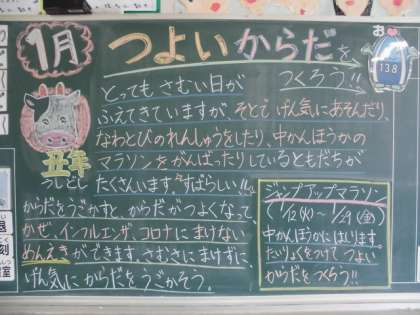 1月 つよいからだを
つくろう!!
とっても さむい日が
ふえてきていますが、そとで げん気にあそんだり、
なわとびのれんしゅうをしたり、中かんほうかの
マラソンをがんばったりしているともだちが
たくさんいます。すばらしい!!!
丑年
うしどし
からだをうごかすと、からだがつよくなって、
かぜ、インフルエンザ、コロナに まけない
めんえきができます。さむさに まけずに、
げん気に からだをうごかそう。
ジャンプアップマラソン
(1/12(火)～1/29(金))
中かんほうかにはしります。
たいりょくをつけて つよい
からだをつくろう!!
お
138
退
刻
室